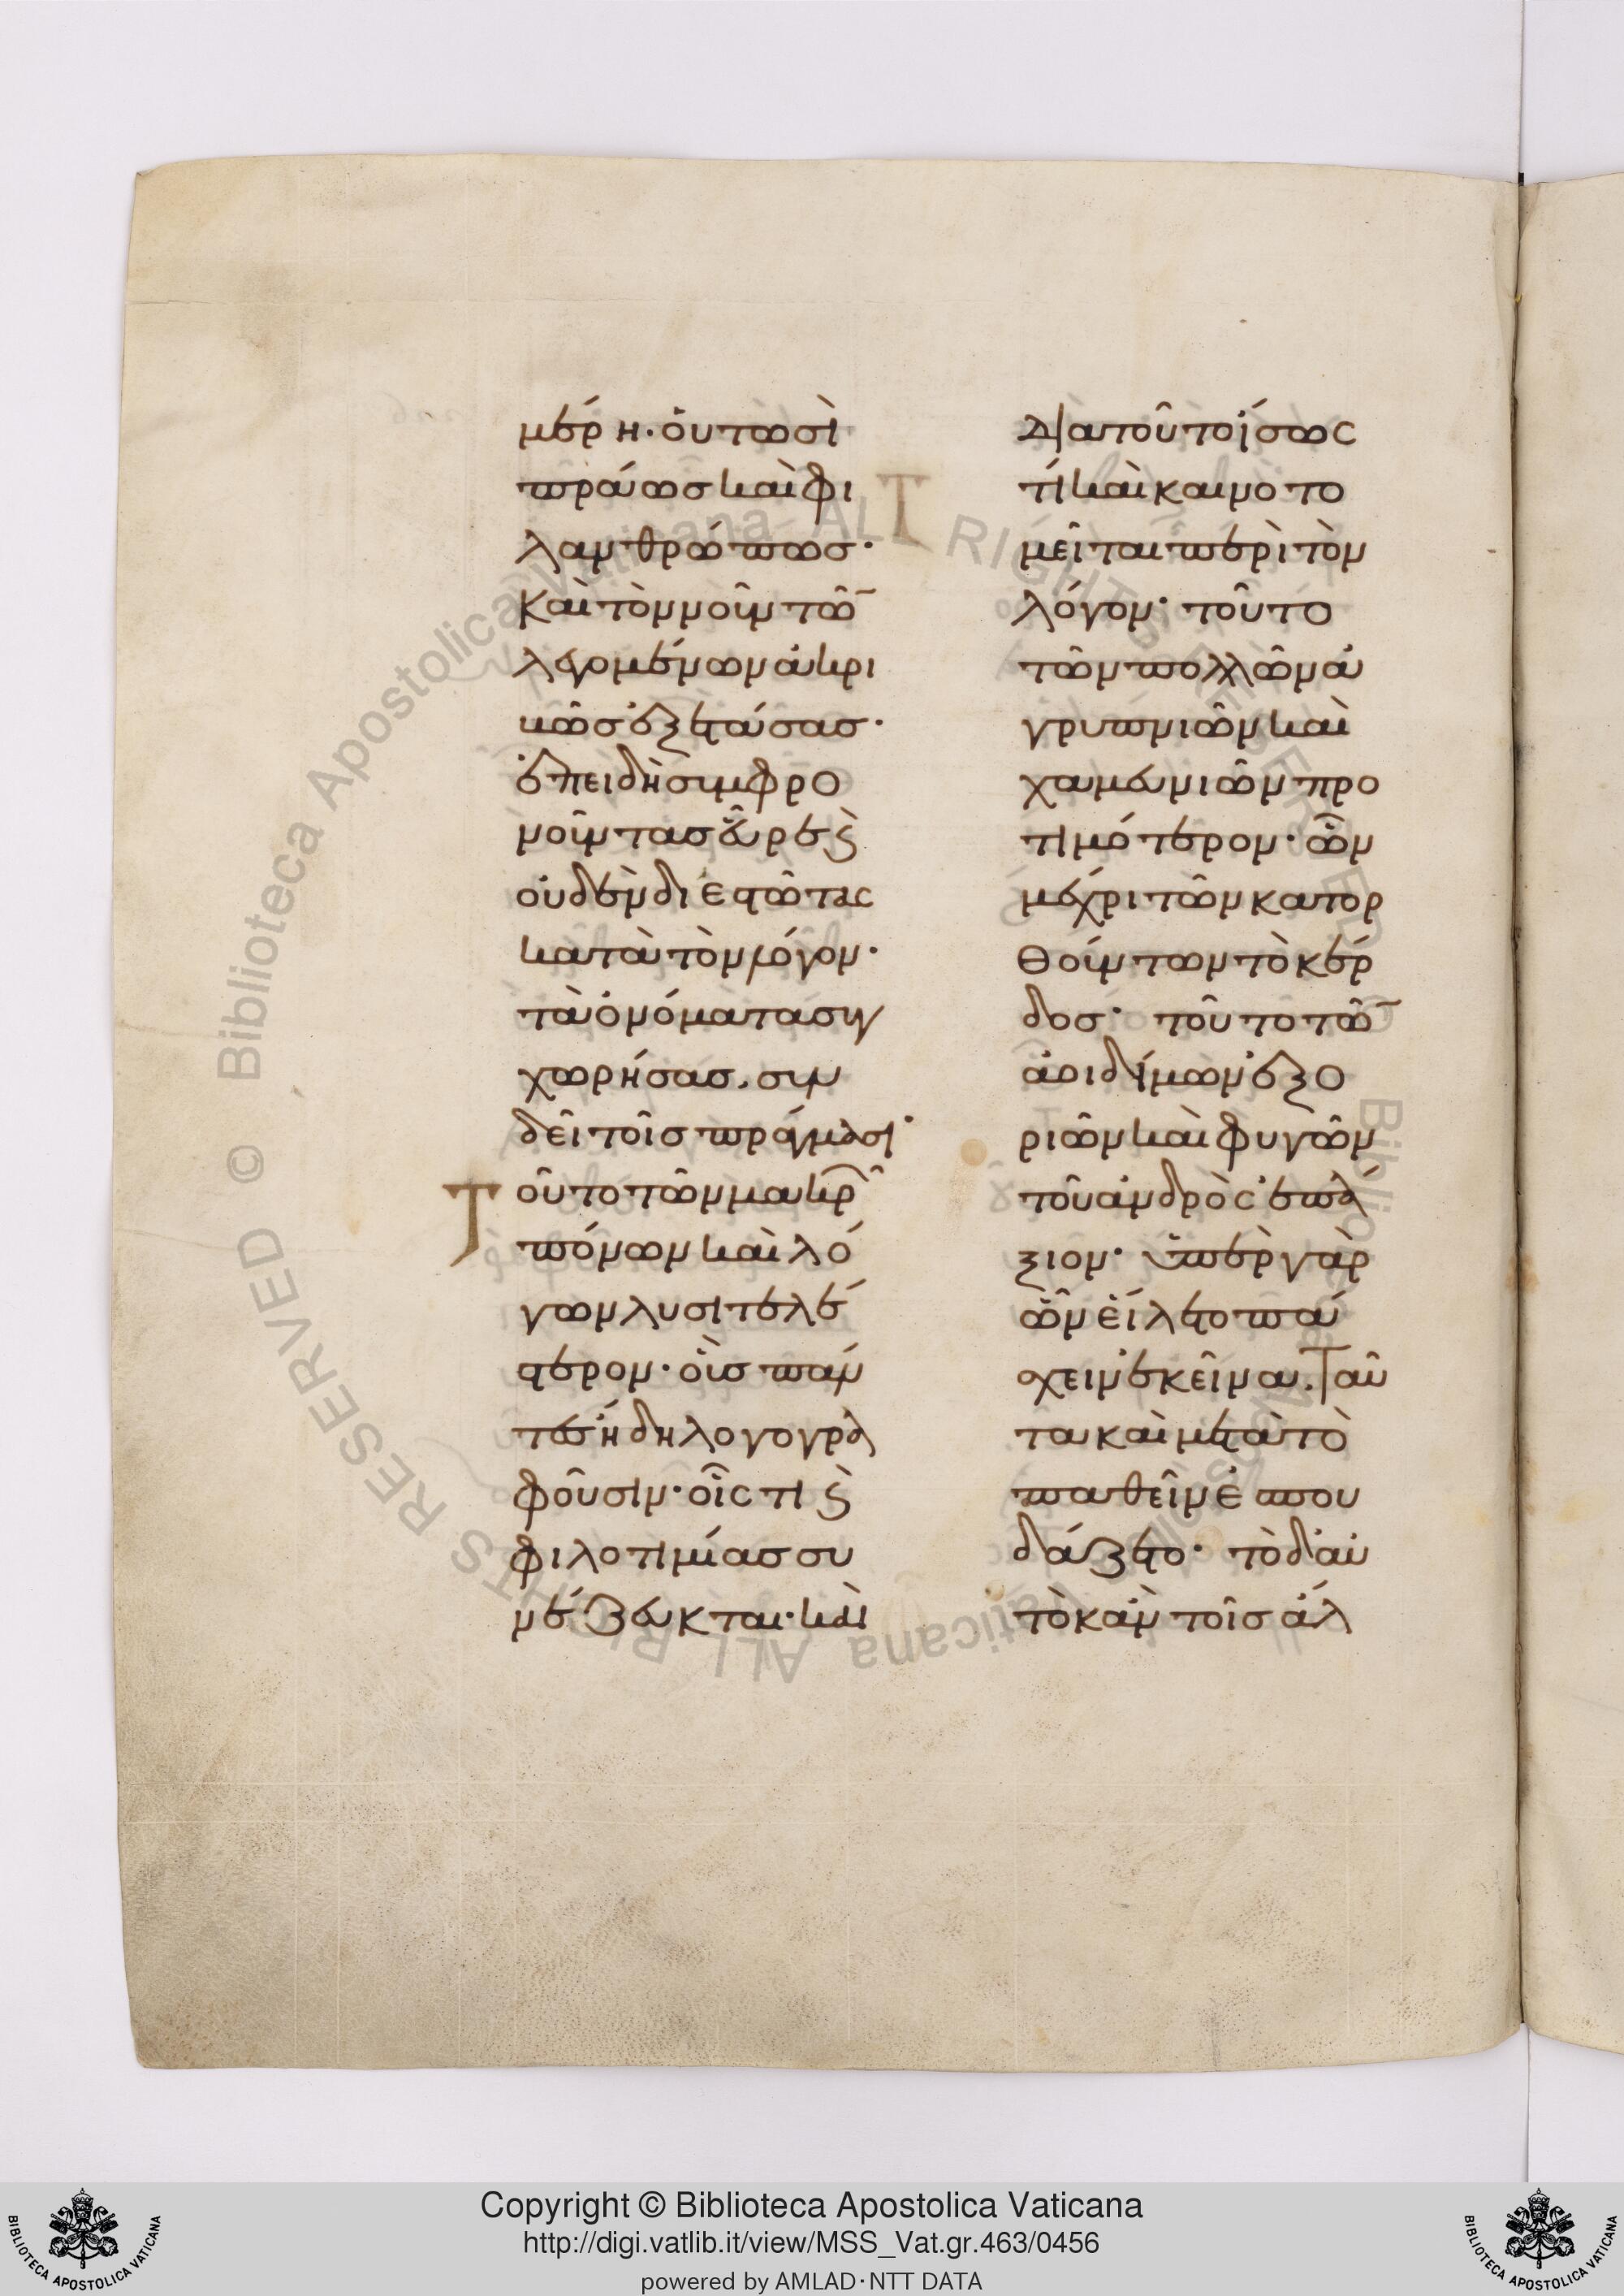 μέρη· οὑτωσὶ
πράως καὶ φι
λανθρώπως·
Καὶ τὸν νοῦν τῶ̄
λεγομένων ἀκρι
κῶς ἐξετάσας·
ἐπειδὴ συμφρο
νοῦντας εὗρε κ̀
οὐδὲν διεστῶτας
κατὰ τὸν λόγον·
τὰ ὀνόματα συγ
χωρήσας, συν
δεῖ τοῖς πράγμασι·
Τοῦτο τῶν μακρῶ̄
πόνων καὶ λό
γων λυσιτελέ
στερον· οἷς πάν
τες ἤδη λογογρα
φοῦσιν· οἷς τι κ̀
φιλοτιμίας συ
νέζευκται· καὶ
διατοῦτο ἴσως
τί καὶ καινοτο
μεῖται περὶ τὸν
λόγον· τοῦτο
τῶν πολλῶν ἀ
γρυπνιῶν καὶ
χαμευνιῶν προ
τιμότερον· ὧν
μέχρι τῶν κατορ
θούντων τὸ κέρ
δος· τοῦτο τῶ̄
ἀοιδίμων ἐξο
ριῶν καὶ φυγῶν
τοῦ ἀνδρὸς ἐπά
ξιον· ὑπὲρ γὰρ
ὧν εἵλετο πά
σχειν ἐκεῖνα. Ταῦ
τα καὶ μετὰ τὸ
παθεῖν ἐσπου
δάζετο· τὸ δ' αὐ
τὸ κἀν τοῖς ἄλ
Copyright © Biblioteca Apostolica Vaticana
http://digi.vatlib.it/view/MSS_Vat.gr.463/0456
powered by AMLAD·NTT DATA
BIBLIOTECA APOSTOLICA VATICANA
BIBLIOTECA APOSTOLICA VATICANA
© Biblioteca Apostolica Vaticana ALL RIGHTS RESERVED
Biblioteca Apostolica Vaticana ALL RIGHTS RESERVED